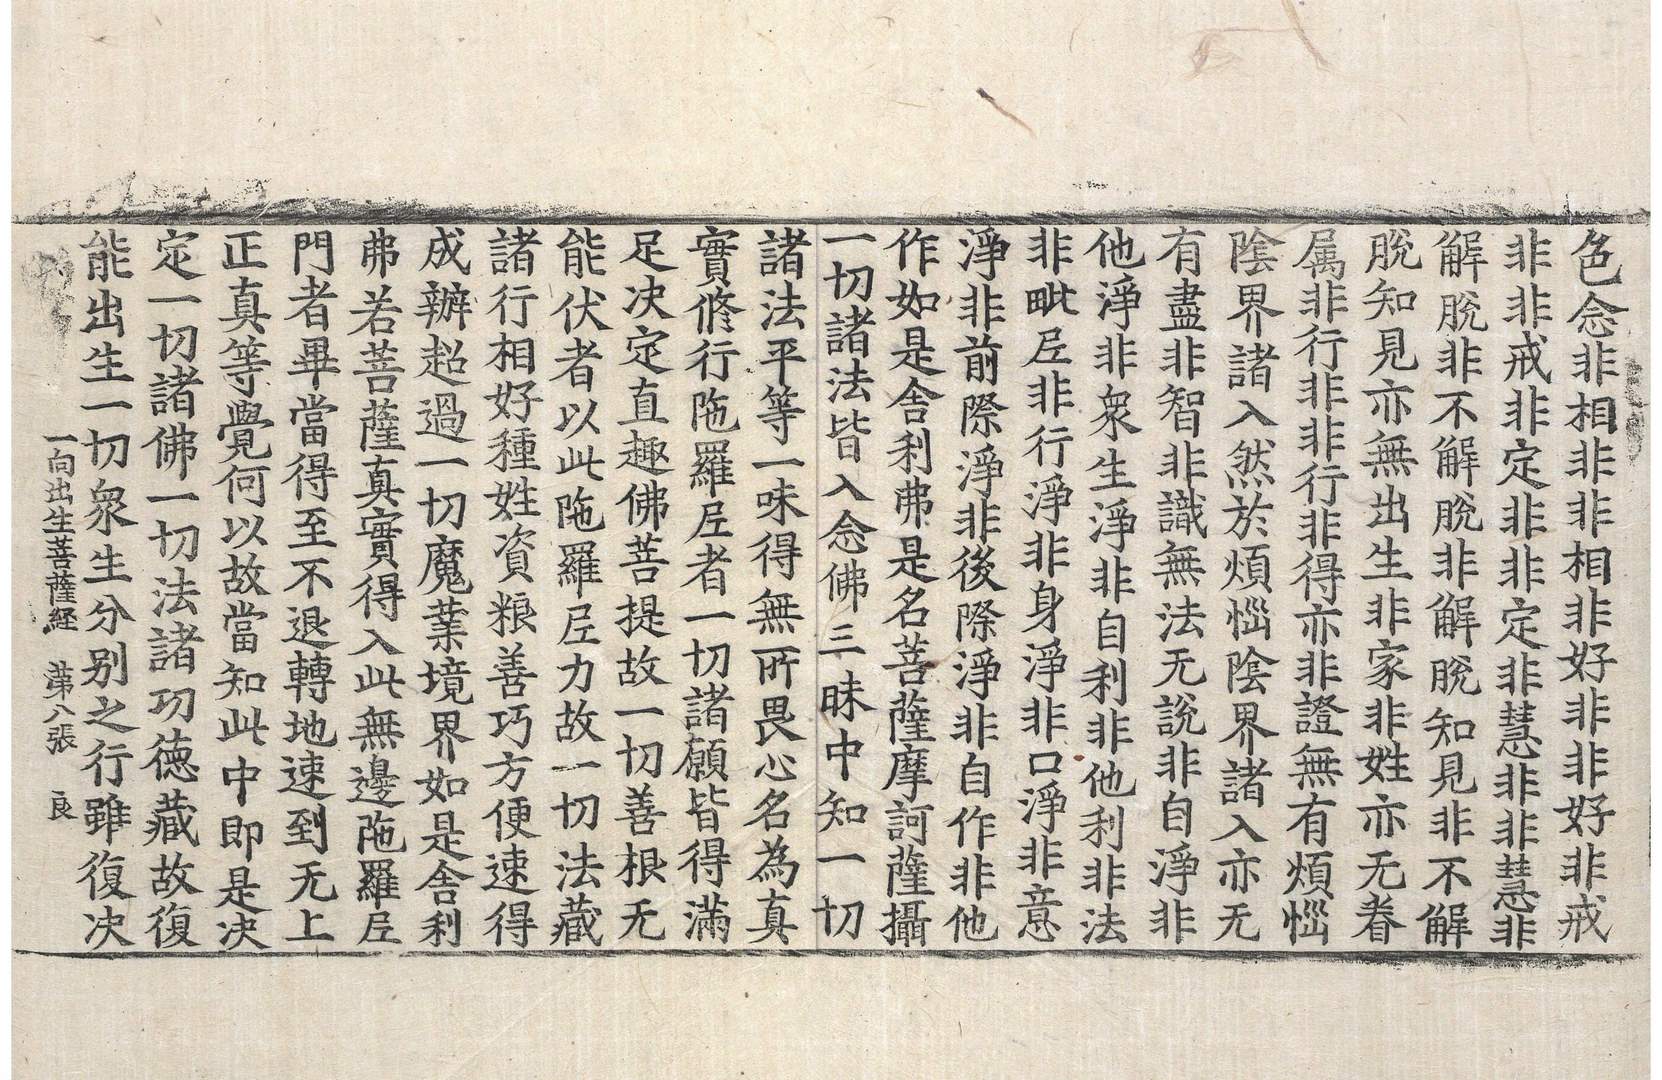 色念非相非非相非好非非好非戒
非非戒非定非非定非慧非非慧非
解脫非不解脫非解脫知見非不解
脫知見亦無出生非家非姓亦无眷
属非行非非行非得亦非證無有煩惱
陰界諸入然於煩惱陰界諸入亦无
有盡非智非識無法无說非自淨非
他淨非衆生淨非自利非他利非法
非毗𡰱非行淨非身淨非口淨非意
淨非前際淨非後際淨非自作非他
作如是舍利弗是名菩薩摩訶薩攝
一切諸法皆入念佛三昧中知一切
諸法平等一味得無所畏心名為真
實脩行陁羅𡰱者一切諸願皆得滿
足决定直趣佛菩提故一切善根无
能伏者以此陁羅𡰱力故一切法藏
諸行相好種姓資粮善巧方便速得
成辦超過一切魔業境界如是舍利
弗若菩薩真實得入此無邊陁羅𡰱
門者畢當得至不退轉地速到无上
正真等覺何以故當知此中即是决
定一切諸佛一切法諸功德藏故復
能出生一切衆生分別之行雖復决
一向出生菩薩経 苐八張 良